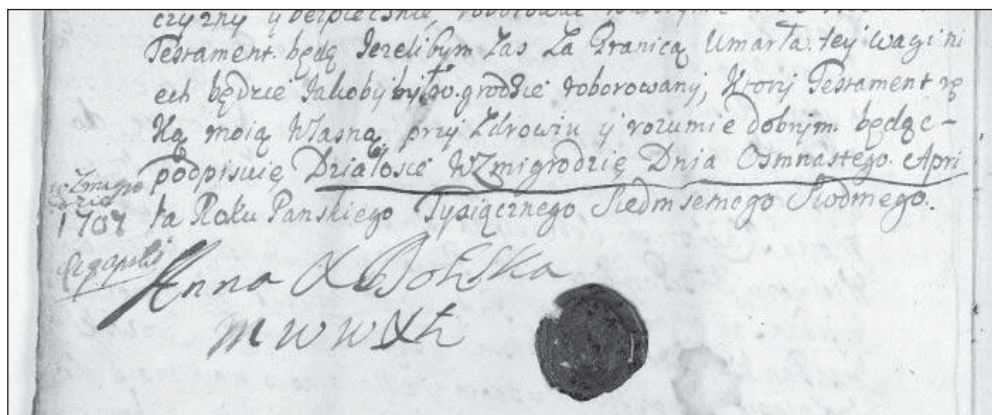 czyzny y bezpiecznie, roborować
Testament. będę Jezelibym Zas Za Granicą Umarła. tey wagi ni
ech będzie Jakoby był w. grodzie roborowany, Ktory Testament rę
Ką moią Własną, przy Zdrowiu y rozumie dobrym. będąc -
podpisuię Działosie WZmigrodzię Dnia Osmnastego. Apri
w Zmigro
dzie
1707
la Roku Panskiego Tysiącznego Siedmsetnego Siodmego.
Anna X Bolska
m w w X L